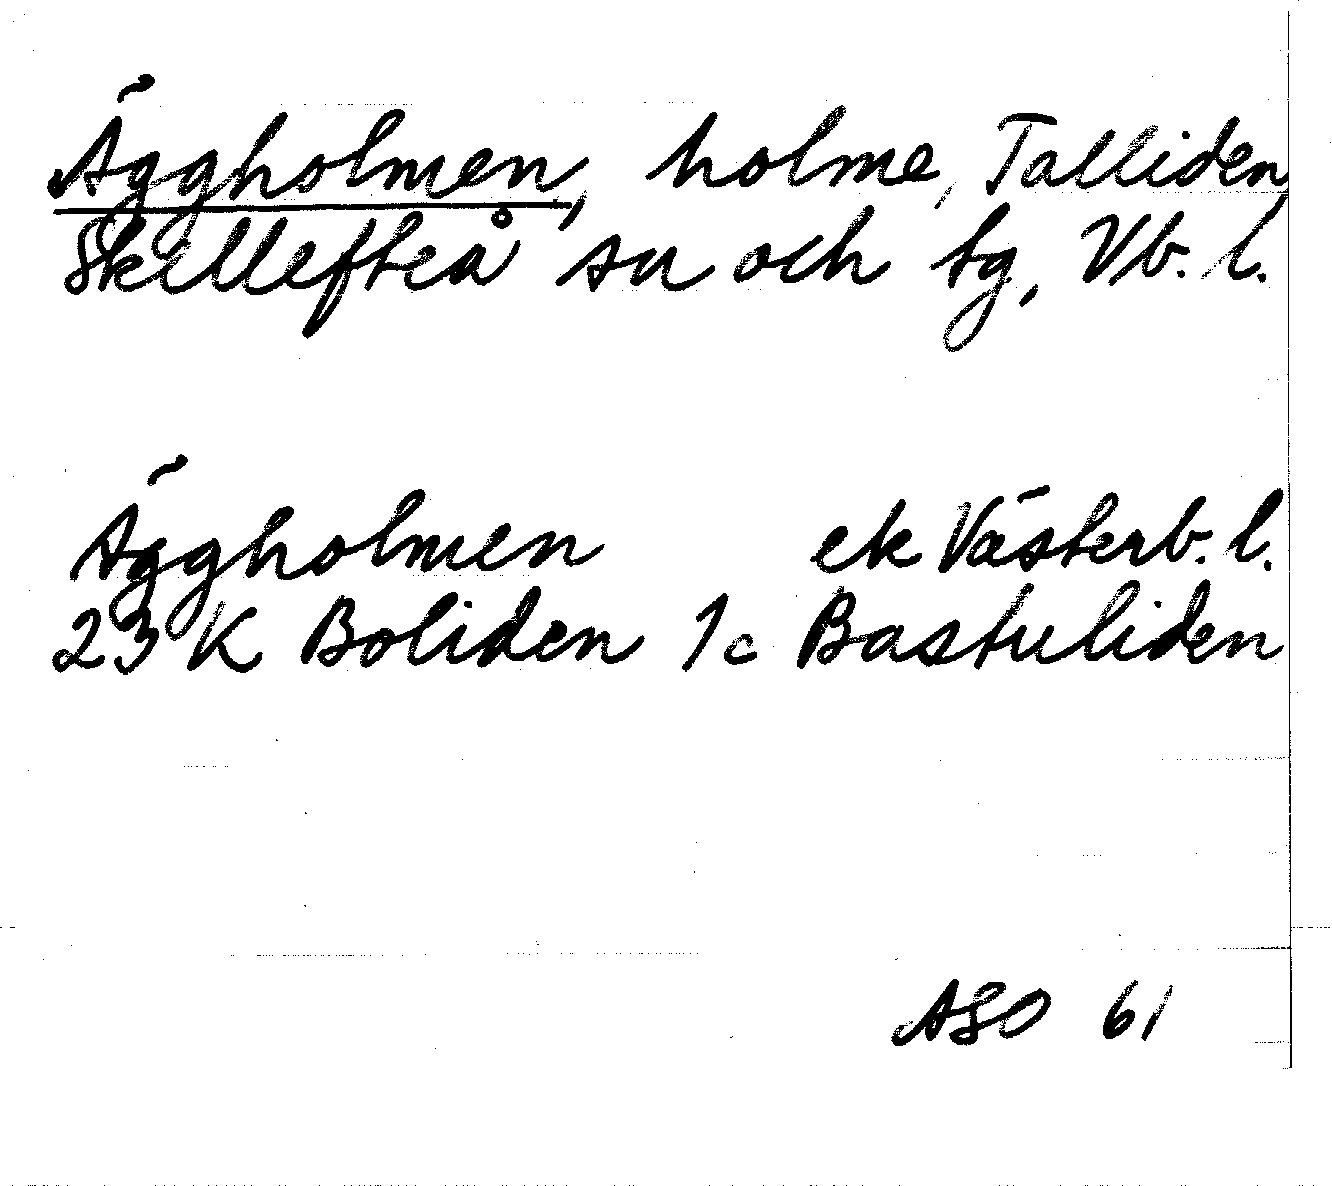 Äggholmen, holme, Talliden
Skellefteå sn och tg, Vb. l.
Äggholmen ek Västerb. l.
23 K Boliden 1c Bastuliden
ASO 61